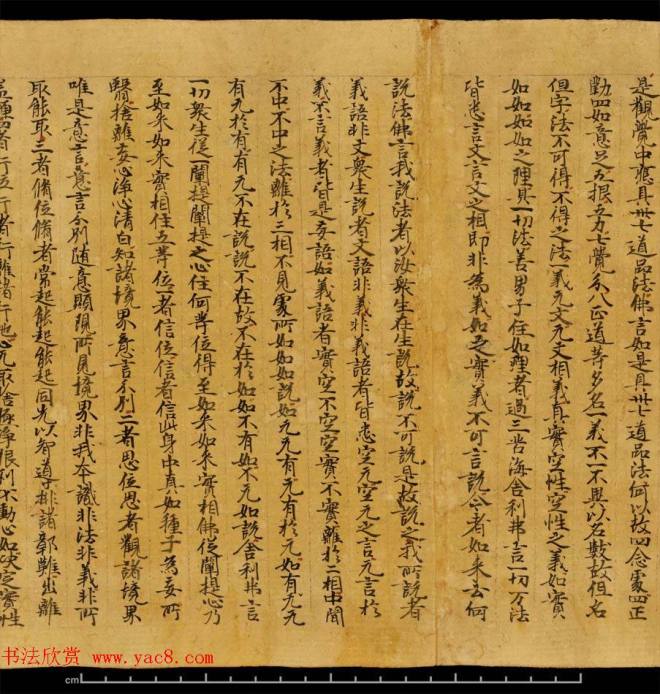 是觀覺中應具卅七道品法佛言如是具卅七道品法何以故四念處四正
勤四如意足五根五力七覺分八正道等多名一義不一不異以名數故但名
但字法不可得不得之法一義无文无文相義真實空性空性之義如實
如如如如之理具一切法善男子住如理者過三苦海舍利弗言一切万法
皆悉言文言文之相即非為義如之實義不可言說今者如來云何
說法佛言我說法者以汝衆生在生說故說不可說是故說之我所說者
義語非文衆生說者文語非義非義語者皆悉空无空无之言无言於
義不言義者皆是妄語如義語者實空不空空實不實離於二相中間
不中不中之法離於三相不見處所如如如說如无无有无有於无如有无无
有无於有有无不在說說不在故不在於如如不有如不无如說舍利弗言
一切衆生從一闡提闡提之心住何等位得至如來如來實相佛從闡提心乃
至如來如來實相住五等位一者信位信者信此身中真如種子為妄所
翳捨離妄心淨心清白知諸境界意言分別二者思位思者觀諸境界
唯是意言意言分別隨意顯現所見境界非我本識非法非義非所
取能取三者脩位脩者常起能起能起同先以智導排諸鄣難出離
蓋纏四者行位行者行離諸行地心无取捨極淨根利不動心如決定實性
书法欣赏 www.yac8.com
cm